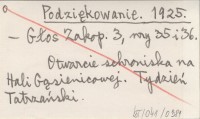 Podziękowanie. 1925.
— Głos Zakop. 3, nry 35 i 36.
Otwarcie schroniska na
Hali Gąsienicowej. Tydzień
Tatrzański.